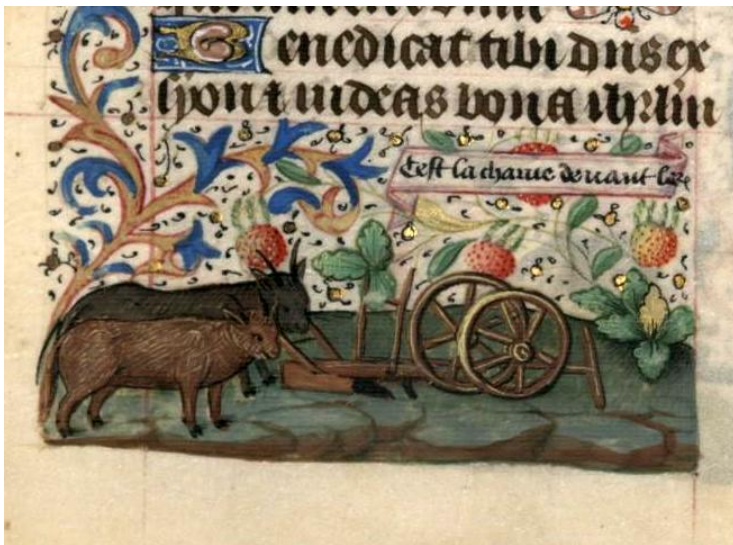 Benedicat tibi dns ex
syon ⁊ uideas bona ihrlm
Cest la charue deuant